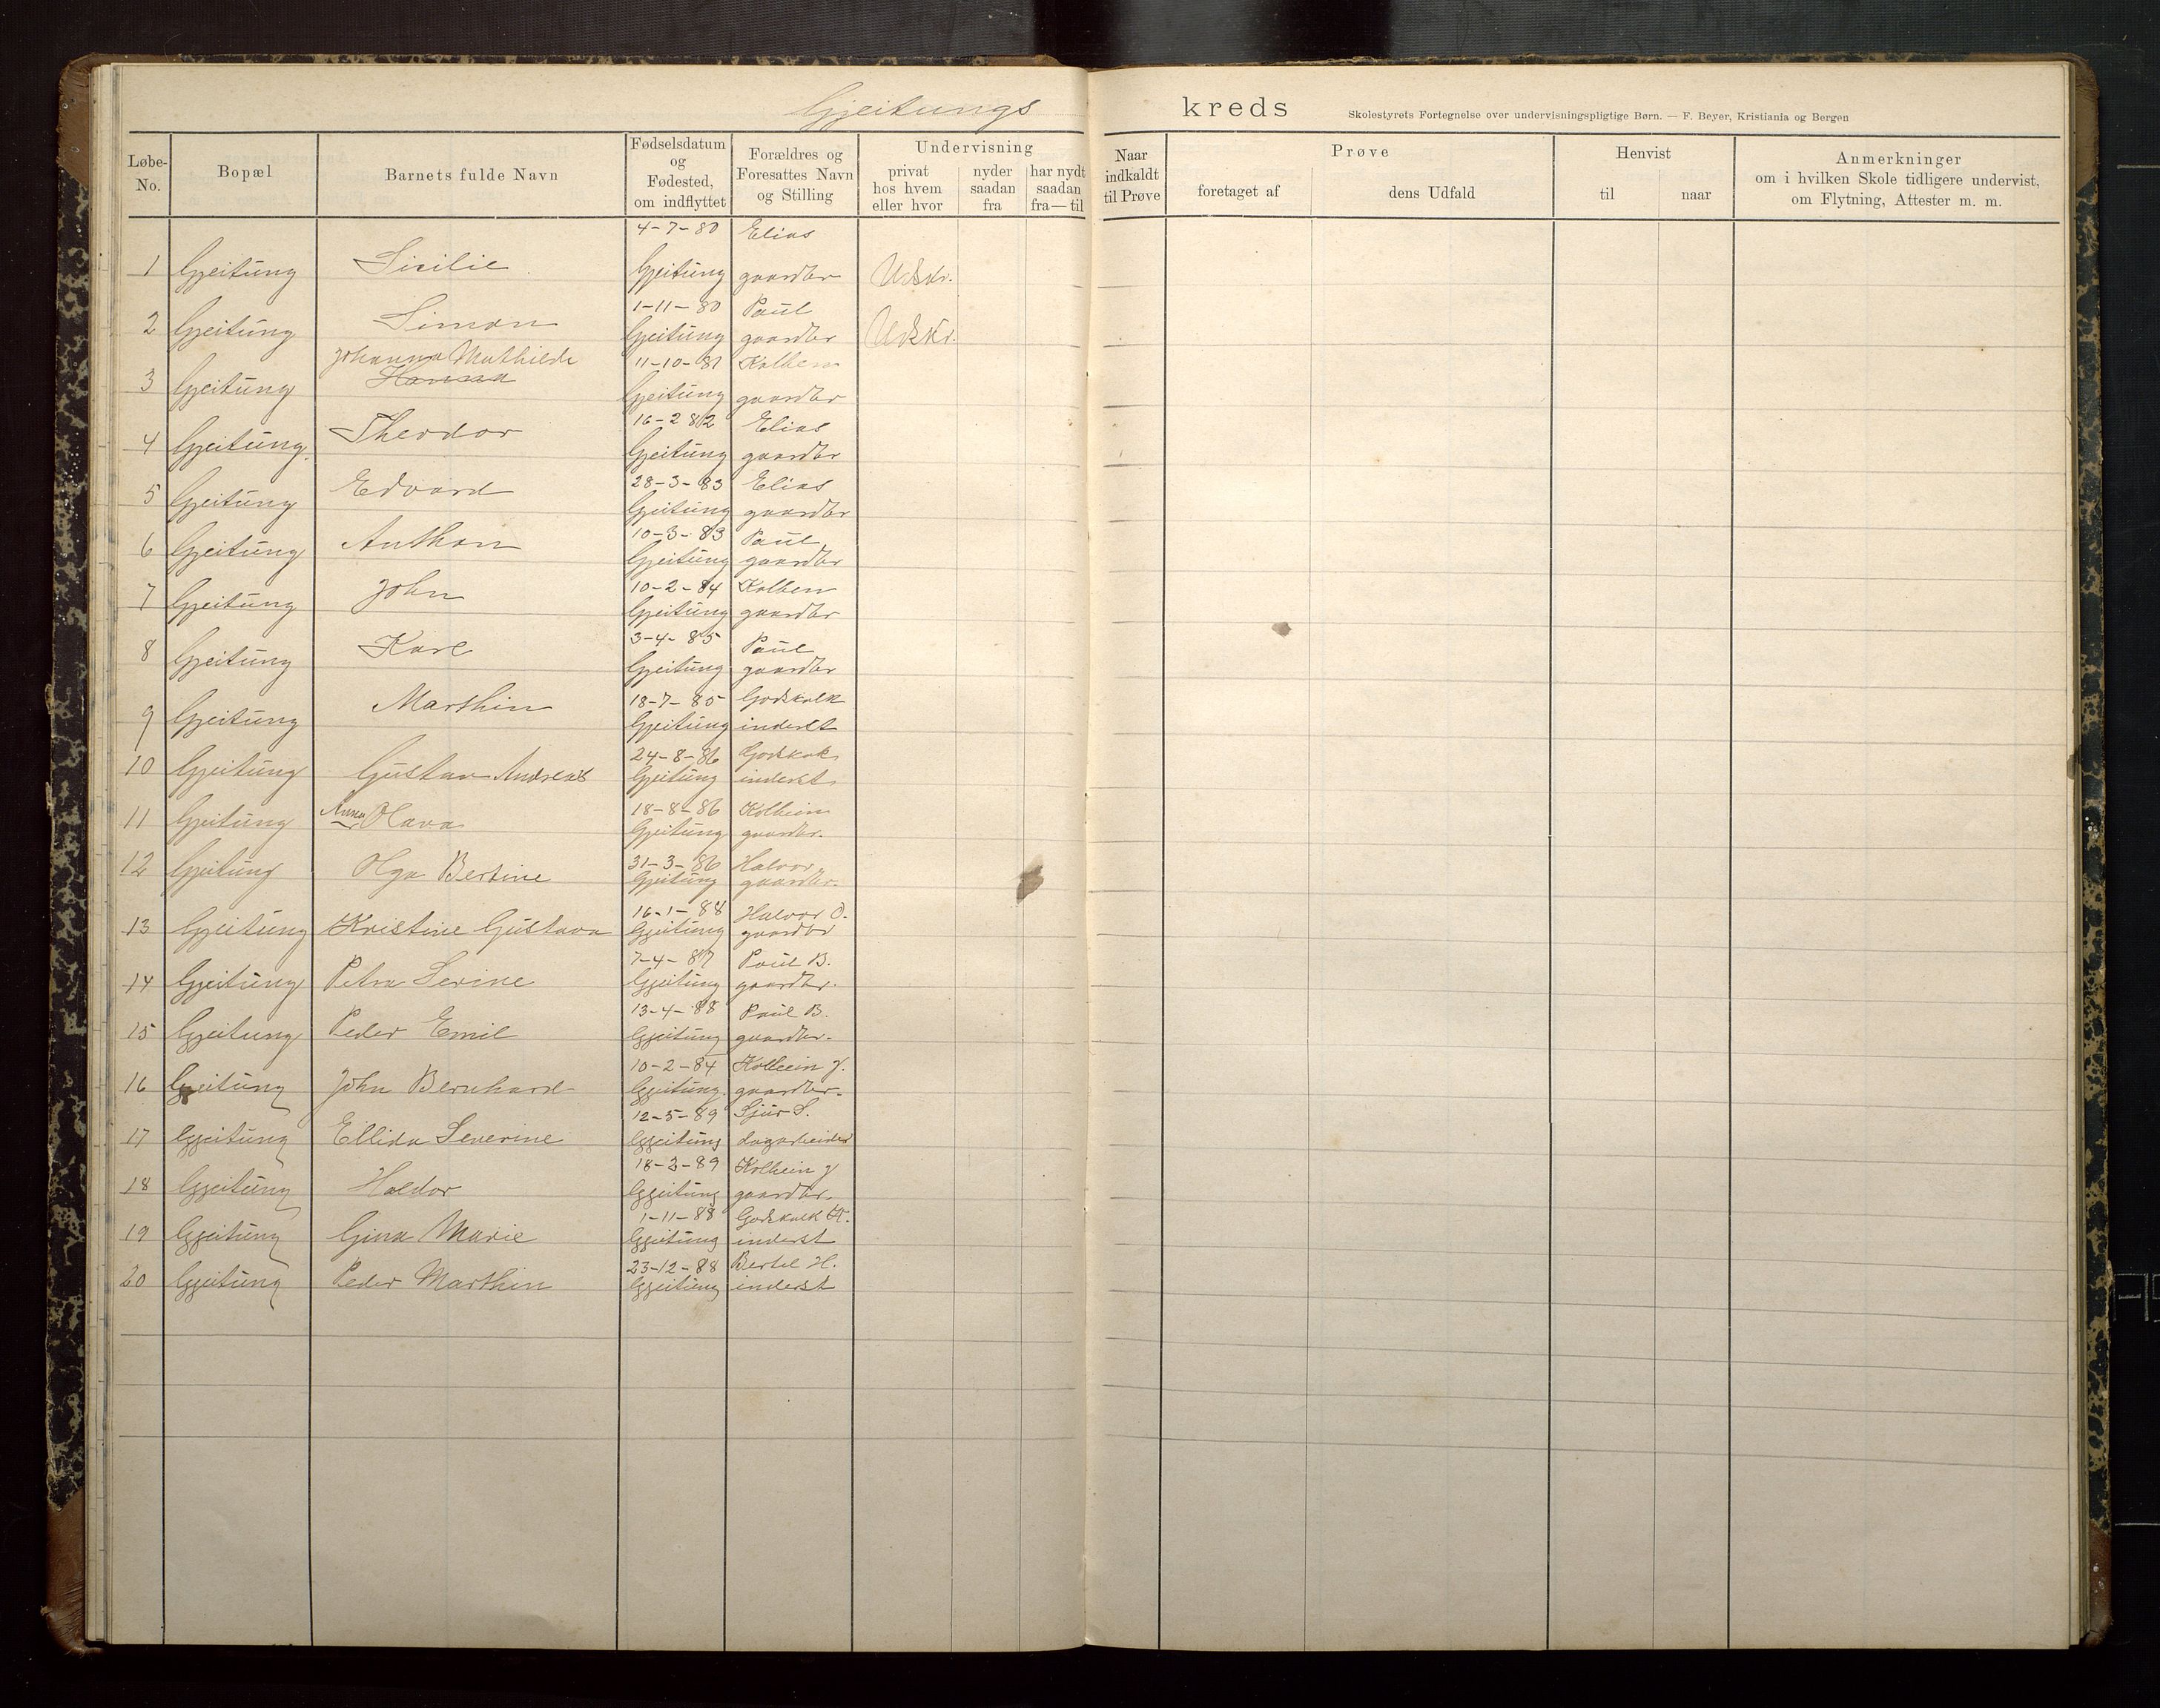 Gjeitungs kreds
Skolestyrets Fortegnelse over undervisningspligtige Børn. — F. Beyer, Kristiania og Bergen
Løbe-No. Bopæl Barnets fulde Navn Fødselsdatum og Fødested, om indflyttet Forældres og Foresattes Navn og Stilling Undervisning privat hos hvem eller hvor nyder saadan fra har nydt saadan fra—til Naar indkaldt til Prøve Prøve foretaget af dens Udfald Henvist til naar Anmerkninger om i hvilken Skole tidligere undervist, om Flytning, Attester m. m.
4-7-80 Elias
1 Gjeitung Sicilie Gjeitung gaardbr Udskr.
1-11-80 Paul
2 Gjeitung Simon Gjeitung gaardbr Udskr.
Johanna Mathilde 11-10-81
3 Gjeitung Hanna Gjeitung gaardbr
16-2 82 Elias
4 Gjeitung Theodor Gjeitung gaardbr
28-3-83 Elias
5 Gjeitung Edvard Gjeitung gaardbr
10-3-83 Paul
6 Gjeitung Anthon Gjeitung gaardbr
10-2-84
7 Gjeitung John Gjeitung gaardbr
3-4-85 Paul
8 Gjeitung Karl Gjeitung gaardbr
18-7-85 Godskalk
9 Gjeitung Marthin Gjeitung inderst
24-8-86 Godskalk
10 Gjeitung Gustav Andreas Gjeitung inderst
18-8-86 Kolbein
11 Gjeitung Anna Olava Gjeitung gaardbr.
31-3-86 Halvor
12 Gjeitung Olga Bertine Gjeitung gaardbr.
16-1-88 Halvor O.
13 Gjeitung Kristine Gustava Gjeitung gaardbr
7-4-87 Paul B.
14 Gjeitung Petra Serine Gjeitung gaardbr.
13-4-88 Paul B.
15 Gjeitung Peder Emil Gjeitung gaardbr.
10-2-84 Kolbein J.
16 Gjeitung John Bernhard Gjeitung gaardbr.
12-5-89 Sjur S.
17 Gjeitung Ellida Severine Gjeitung dagarbeider
18-2-89 Kolbein J
18 Gjeitung Haldor Gjeitung gaardbr.
1-11-88 Godskalk
19 Gjeitung Gina Marie Gjeitung inderst
23-12-88 Bertel H.
20 Gjeitung Peder Marthin Gjeitung inderst